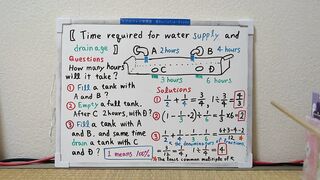 【 Time required for water supply and
drainage 】
A 2 hours
B 4 hours
C
D
3 hours
6 hours
Questions
How many hours
will it take?
① Fill a tank with
A and B?
② Empty a full tank.
After C 2 hours, with D?
③ Fill a tank with A
and B, and same time
drain a tank with C
and D?
1 means 100%
Solutions
① 1/2 + 1/4 = 3/4, 1÷3/4 = 4/3
② (1 - 1/3 ×2) ÷ 1/6 = 1/3 ×6 = 2
③ 1/2 + 1/4 - 1/3 - 1/6 = 6+3-4-2/12
= 3/12 = 1/4, 1÷1/4 = 4
The least common multiple of